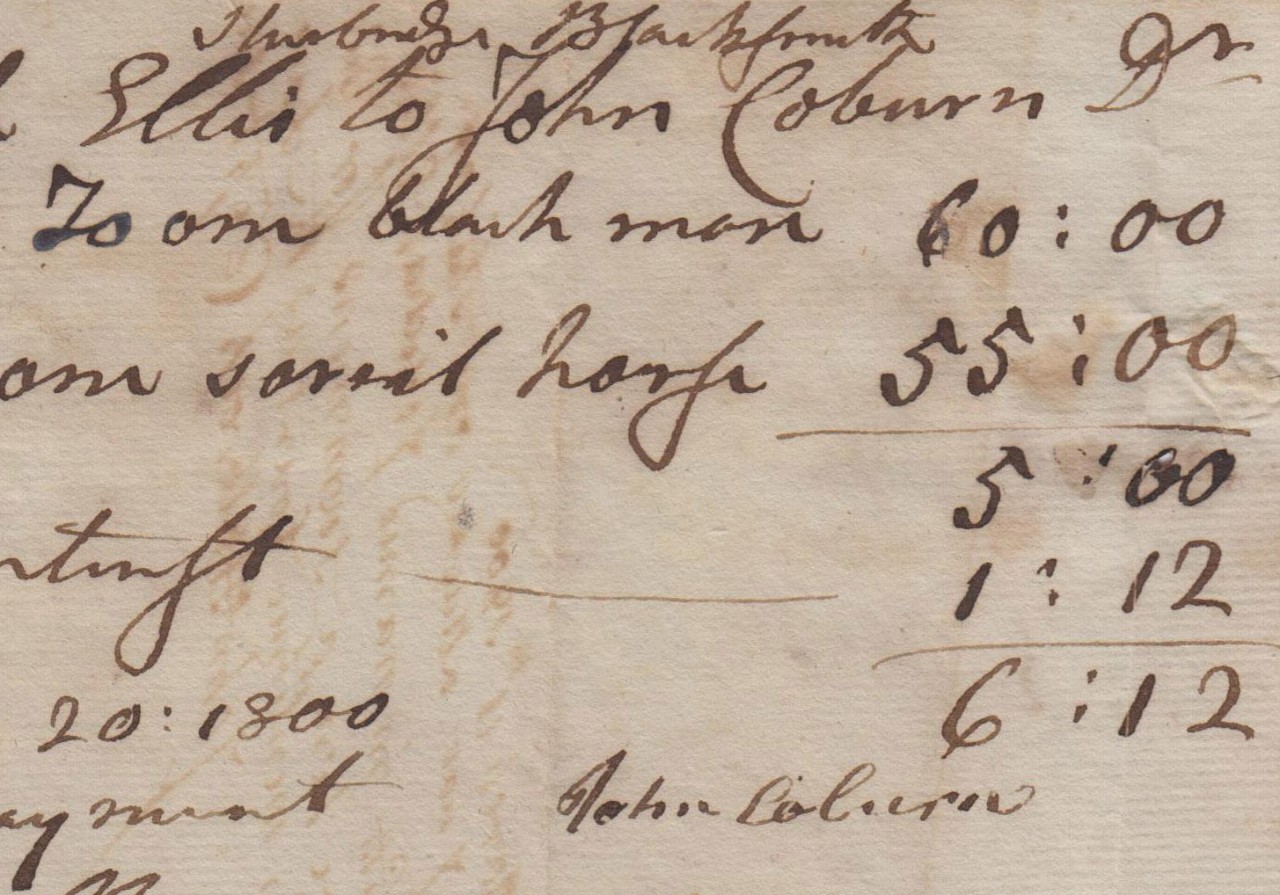 Sturbridge Blacksmith
Ellis to John Coburn Dr
To one black mare 60:00
one sorril horse 55:00
5:00
1:12
20:1800 6:12
ayment John Coburn